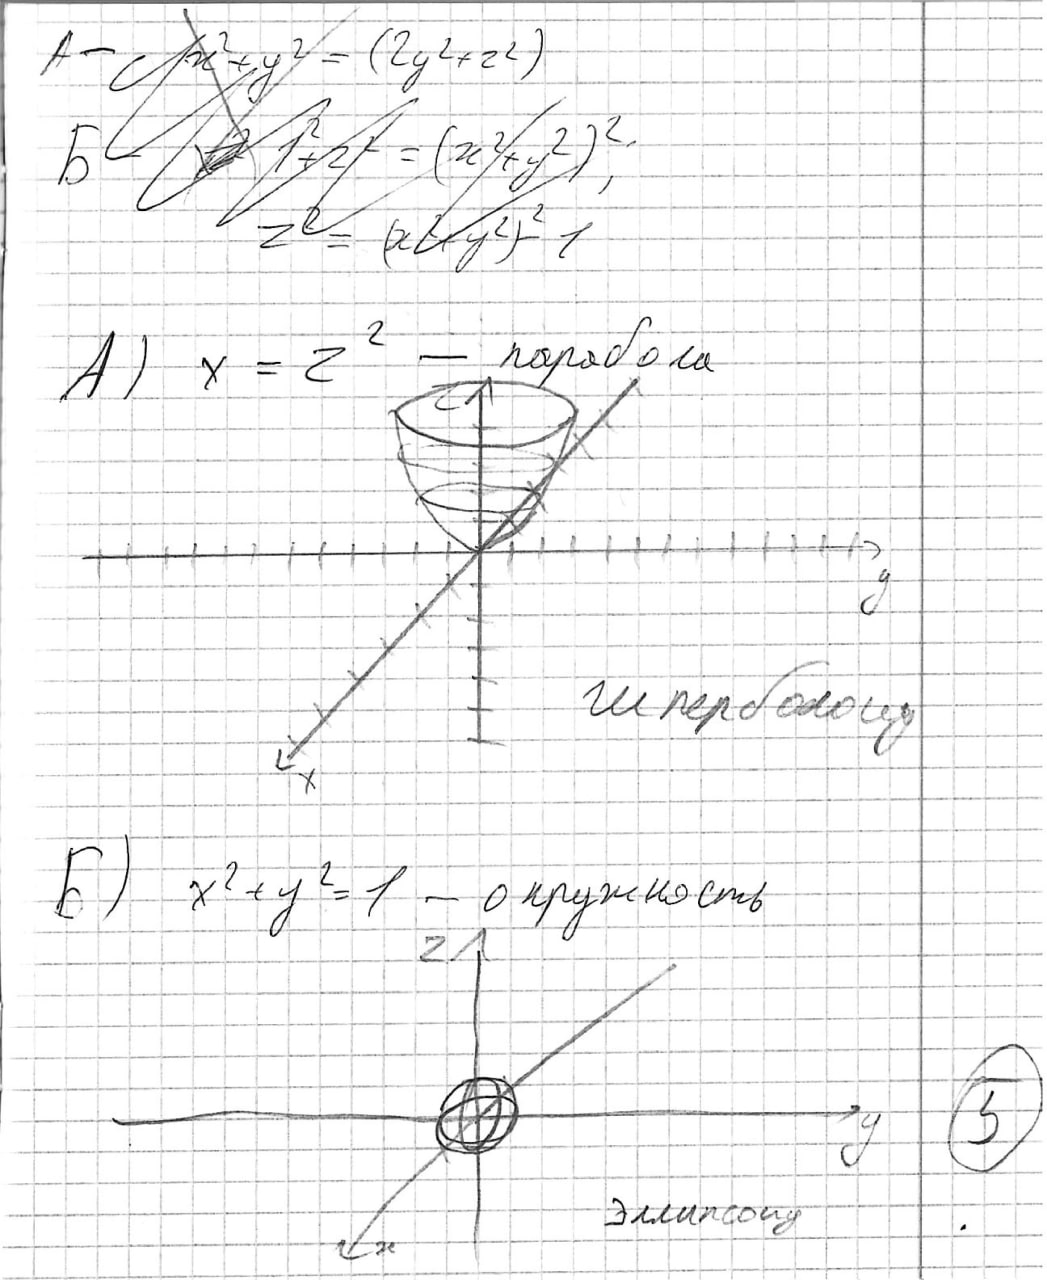 А - x²+y² = (2y²+z²)
Б - 1²+z² = (x²+y²)²;
z² = (x²+y²)² - 1
А) x = z² — парабола
z
y
гиперболоид
x
Б) x²+y²=1 — окружность
z
y
5
эллипсоид
x